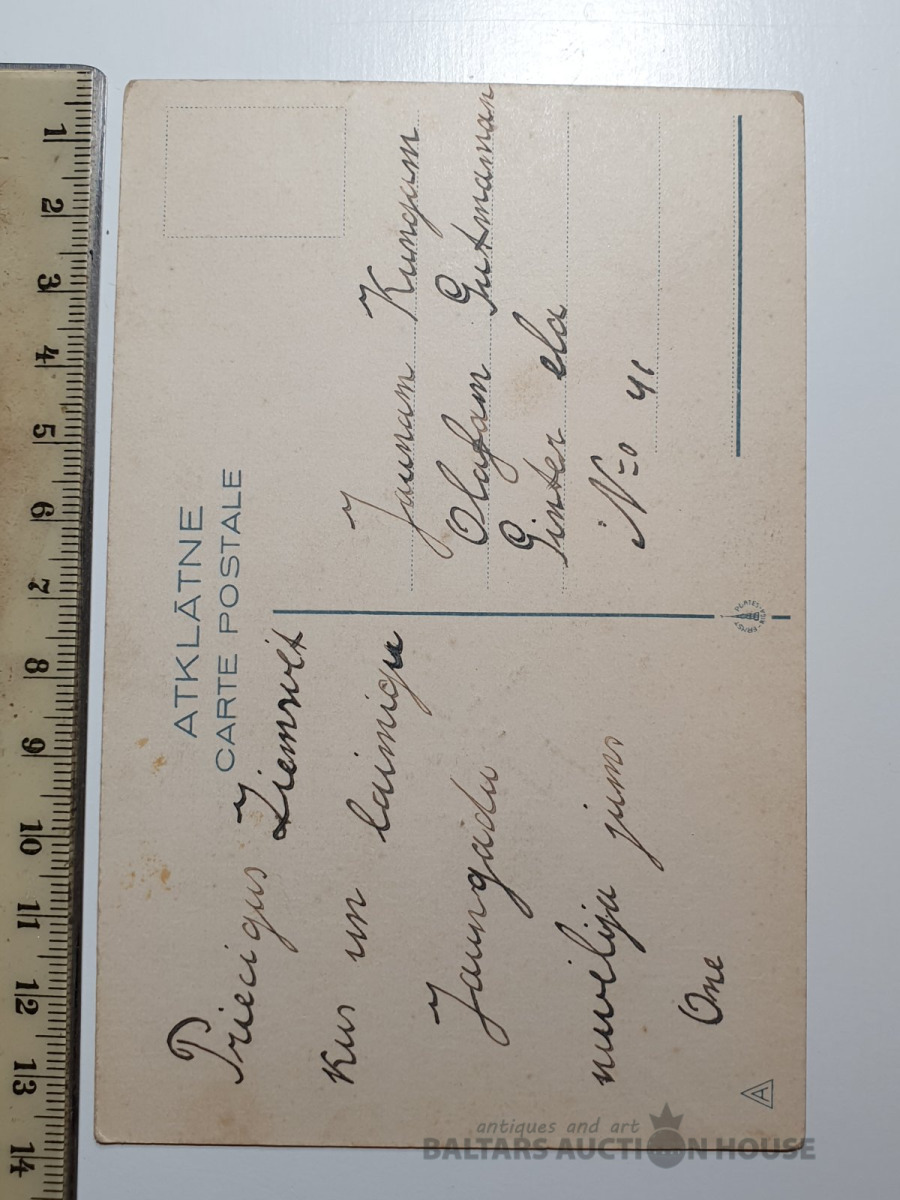 ATKLĀTNE
CARTE POSTALE
Priecigus Ziemsvēt
kus un laimigu
Jaungadu
nuvelija jums
One
Jaunam Kungam
Olafam Gutmanan
Ginter ela
No 41
A
1 2 3 4 5 6 7 8 9 10 11 12 13 14
antiques and art
BALTARS AUCTION HOUSE